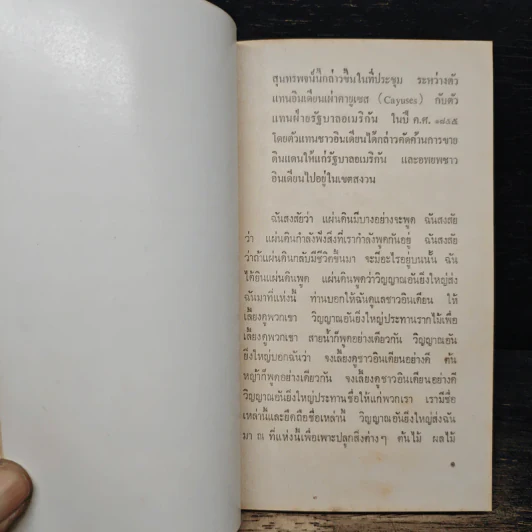 สุนทรพจน์นี้กล่าวขึ้นในที่ประชุม ระหว่างตัว
แทนอินเดียนเผ่าคายูเซส (Cayuses) กับตัว
แทนฝ่ายรัฐบาลอเมริกัน ในปี ค.ศ. ๑๘๕๕
โดยตัวแทนชาวอินเดียนได้กล่าวคัดค้านการขาย
ดินแดนให้แก่รัฐบาลอเมริกัน และอพยพชาว
อินเดียนไปอยู่ในเขตสงวน
ฉันสงสัยว่า แผ่นดินมีบางอย่างจะพูด ฉันสงสัย
ว่า แผ่นดินกำลังฟังสิ่งที่เรากำลังพูดกันอยู่ ฉันสงสัย
ว่าถ้าแผ่นดินกลับมีชีวิตขึ้นมา จะมีอะไรอยู่บนนั้น ฉัน
ได้ยินแผ่นดินพูด แผ่นดินพูดว่าวิญญาณอันยิ่งใหญ่ส่ง
ฉันมาที่แห่งนี้ ท่านบอกให้ฉันดูแลชาวอินเดียน ให้
เลี้ยงดูพวกเขา วิญญาณอันยิ่งใหญ่ประทานรากไม้เพื่อ
เลี้ยงดูพวกเขา สายน้ำก็พูดอย่างเดียวกัน วิญญาณอัน
ยิ่งใหญ่บอกฉันว่า จงเลี้ยงดูชาวอินเดียนอย่างดี ต้น
หญ้าก็พูดอย่างเดียวกัน จงเลี้ยงดูชาวอินเดียนอย่างดี
วิญญาณอันยิ่งใหญ่ประทานชื่อให้แก่พวกเรา เรามีชื่อ
เหล่านี้และยึดถือชื่อเหล่านี้ วิญญาณอันยิ่งใหญ่ส่งฉัน
มา ณ ที่แห่งนี้เพื่อเพาะปลูกสิ่งต่างๆ ต้นไม้ ผลไม้